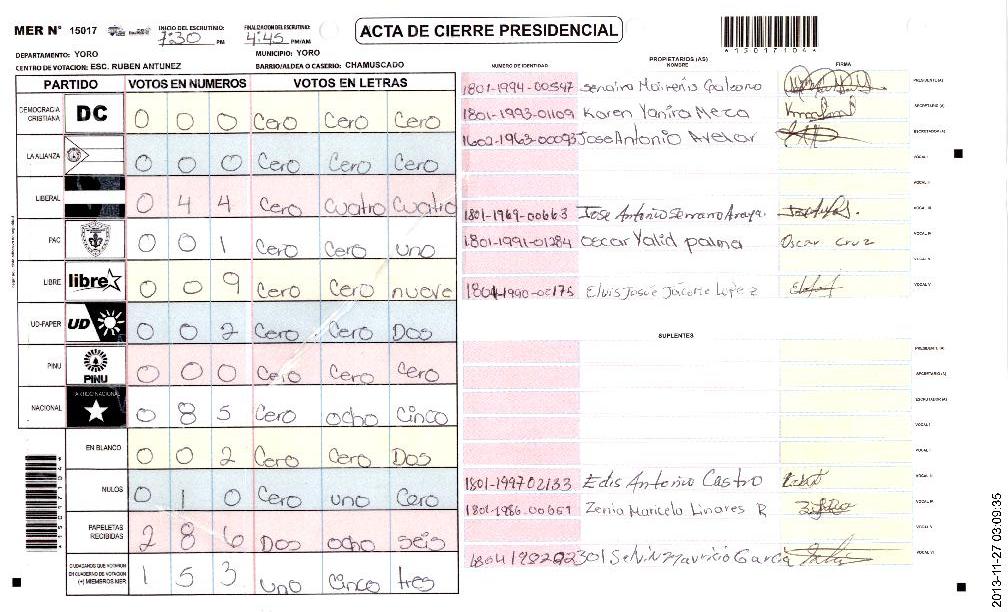 MER N° 15017 INICIO DEL ESCRUTINIO: 7:30 PM FINALIZACION DEL ESCRUTINIO: 4:45 PM/AM
ACTA DE CIERRE PRESIDENCIAL
*150171041*
DEPARTAMENTO: YORO MUNICIPIO: YORO
CENTRO DE VOTACION: ESC. RUBEN ANTUNEZ BARRIO/ALDEA O CASERIO: CHAMUSCADO
PARTIDO VOTOS EN NUMEROS VOTOS EN LETRAS
DEMOCRACIA CRISTIANA DC 0 0 0 Cero Cero Cero
LA ALIANZA 0 0 0 Cero Cero Cero
LIBERAL 0 4 4 Cero Cuatro Cuatro
PAC 0 0 1 Cero Cero uno
LIBRE libre 0 0 9 Cero Cero nueve
UD-FAPER UD 0 0 2 Cero Cero Dos
PINU PINU 0 0 0 Cero Cero Cero
NACIONAL PARTIDO NACIONAL 0 8 5 Cero ocho Cinco
EN BLANCO 0 0 2 Cero Cero Dos
NULOS 0 1 0 Cero uno Cero
PAPELETAS RECIBIDAS 2 8 6 Dos ocho seis
CIUDADANOS QUE VOTARON EN CUADERNO DE VOTACION (+) MIEMBROS MER 1 5 3 uno Cinco tres
PROPIETARIOS (AS)
NUMERO DE IDENTIDAD NOMBRE FIRMA
1801-1994-00547 PRESIDENTE(A)
1801-1993-01109 Karen Yanira Meza SECRETARIO (A)
1602-1963-00093 Jose Antonio Avelar ESCRUTADOR(A)
VOCAL I
VOCAL II
1801-1969-00663 Jose Antonio Serrano VOCAL III
1801-1991-01284 oscar Yalid palma Oscar Cruz VOCAL IV
VOCAL V
1804-1990-02175 Elvis Josué Lopez VOCAL V
SUPLENTES
PRESIDENTE (A)
SECRETARIO (A)
ESCRUTADOR(A)
VOCAL I
VOCAL II
1801-199702133 Edis Antonio Castro VOCAL III
1801-1986-00651 Zenia Maricela Linares R VOCAL IV
VOCAL V
Mauricio Garcia VOCAL VI
2013-11-27 03:09:35